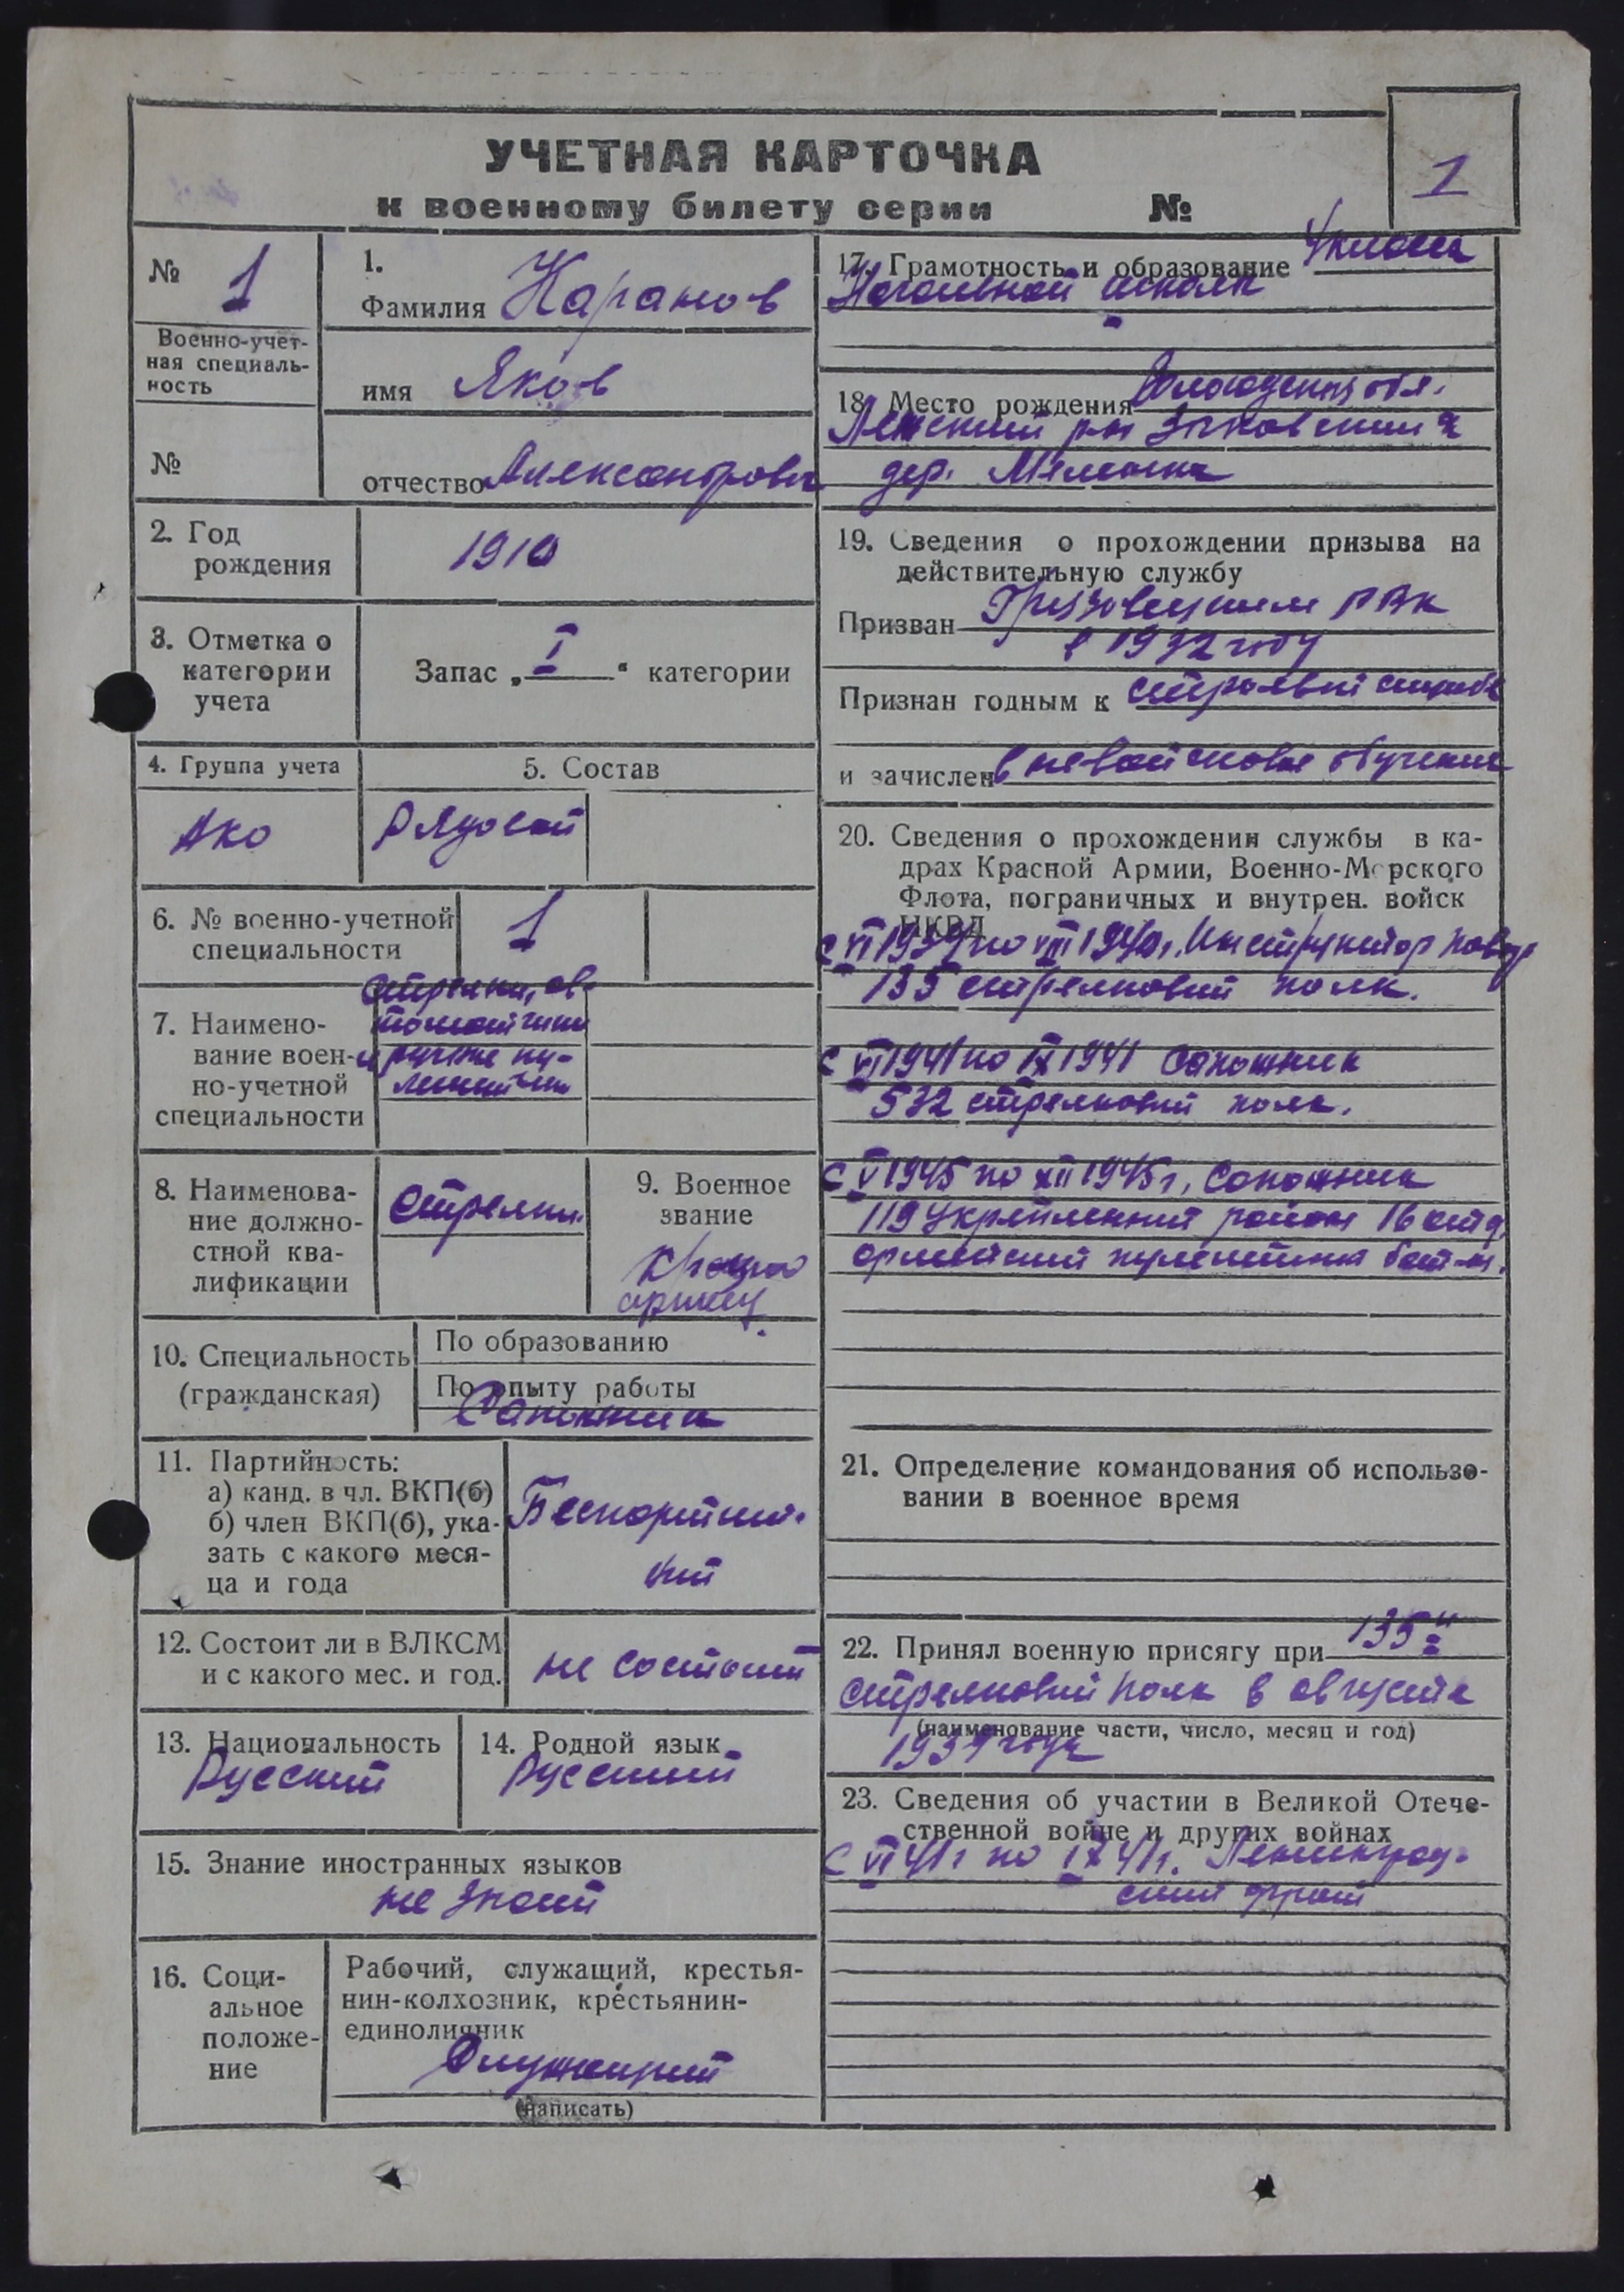 УЧЕТНАЯ КАРТОЧКА
к военному билету серии №
1
№ 1
Военно-учет-
ная специаль-
ность
№
1.
Фамилия Каранов
имя Яков
отчество Александрович
2. Год
рождения
1910
3. Отметка о
категории
учета
Запас „ I “ категории
4. Группа учета
АКО
5. Состав
Рядовой
6. № военно-учетной
специальности
1
7. Наимено-
вание воен-
но-учетной
специальности
Стрелки, ав-
томатчики
и ручные пу-
леметчики
8. Наименова-
ние должно-
стной ква-
лификации
Стрелки
9. Военное
звание
Красно
армеец
10. Специальность
(гражданская)
По образованию
По опыту работы
Сапожник
11. Партийность:
а) канд. в чл. ВКП(б)
б) член ВКП(б), ука-
зать с какого меся-
ца и года
Беспартий-
ный
12. Состоит ли в ВЛКСМ
и с какого мес. и год.
не состоит
13. Национальность
Русский
14. Родной язык
Русский
15. Знание иностранных языков
не знает
16. Соци-
альное
положе-
ние
Рабочий, служащий, крестья-
нин-колхозник, крестьянин-
единоличник
Служащий
(написать)
17. Грамотность и образование 4 класса
начальной школы
18. Место рождения Вологодская обл.
Ленский р-н
дер.
19. Сведения о прохождении призыва на
действительную службу
Призван Грязовецким РВК
в 1932 году
Признан годным к строевой службе
и зачислен в невойсковое обучение
20. Сведения о прохождении службы в ка-
драх Красной Армии, Военно-Морского
Флота, пограничных и внутрен. войск
НКВД
с VI 1939 по VIII 1940г. Инструктор
135 стрелковый полк.
с VI 1941 по IX 1941 сапожник
532 стрелковый полк.
с V 1945 по XII 1945г. сапожник
119 Укрепленный район 16 отд.
армейский пулеметный бат-н.
21. Определение командования об использо-
вании в военное время
22. Принял военную присягу при 135м
стрелковый полк в августе
(наименование части, число, месяц и год)
1939 года
23. Сведения об участии в Великой Отече-
ственной войне и других войнах
с VI 41г по IX 41г. Ленинград-
ский фронт